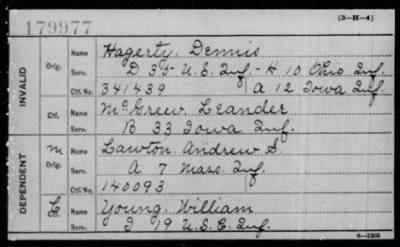 179977
(3-H-4)
INVALID
Orig. Name Hagerty, Dennis
Serv. D 35 U.S. Inf. - K 10 Ohio Inf.
Ctf. No. 341439 | A 12 Iowa Inf.
Ctf. Name McGrew Leander
Serv. B 33 Iowa Inf.
DEPENDENT
M Orig. Name Lawton Andrew S.
Serv. A 7 Mass. Inf.
Ctf. No. 140093
C Ctf. Name Young, William
Serv. I 19 U.S.C. Inf.
6-1303